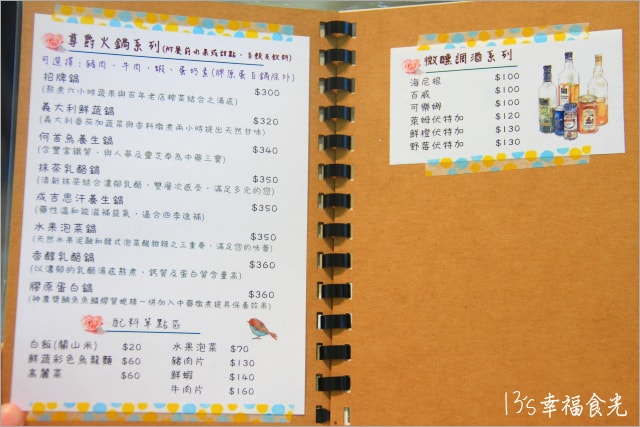 尊爵火鍋系列(附餐前水果或甜點、吾穀及飲料)
可選擇:豬肉、牛肉、蝦、蛋奶素(膠原蛋白鍋除外)
招牌鍋 $300
(熬煮六小時蔬果與百年老店榨菜結合之湯底)
義大利鮮蔬鍋 $320
(義大利番茄加蔬菜與香料燉煮兩小時提出天然甘味)
何首烏養生鍋 $340
(含豐富鐵質、與人蔘及靈芝奉為中藥三寶)
抹茶乳酪鍋 $350
(清新抹茶結合濃郁乳酪,雙層次感受,滿足多元的您)
成吉思汗養生鍋 $350
(藥性溫和能滋補益氣,適合四季進補)
水果泡菜鍋 $350
(天然水果泥融和韓式泡菜酸甜辣之三重奏,滿足您的味蕾)
香醇乳酪鍋 $360
(以濃郁的乳酪湯底熬煮,鈣質及蛋白質含量高)
膠原蛋白鍋 $360
(神農雙鯛魚魚鱗膠質燒精一併加入中藥燉煮提具保養效果)
配料單點區
白飯(關山米) $20
鮮蔬彩色烏龍麵 $60
高麗菜 $60
水果泡菜 $70
豬肉片 $130
鮮蝦 $140
牛肉片 $160
微醺調酒系列
海尼根 $100
百威 $100
可樂娜 $100
萊姆伏特加 $120
鮮橙伏特加 $130
野莓伏特加 $130
13's幸福食光